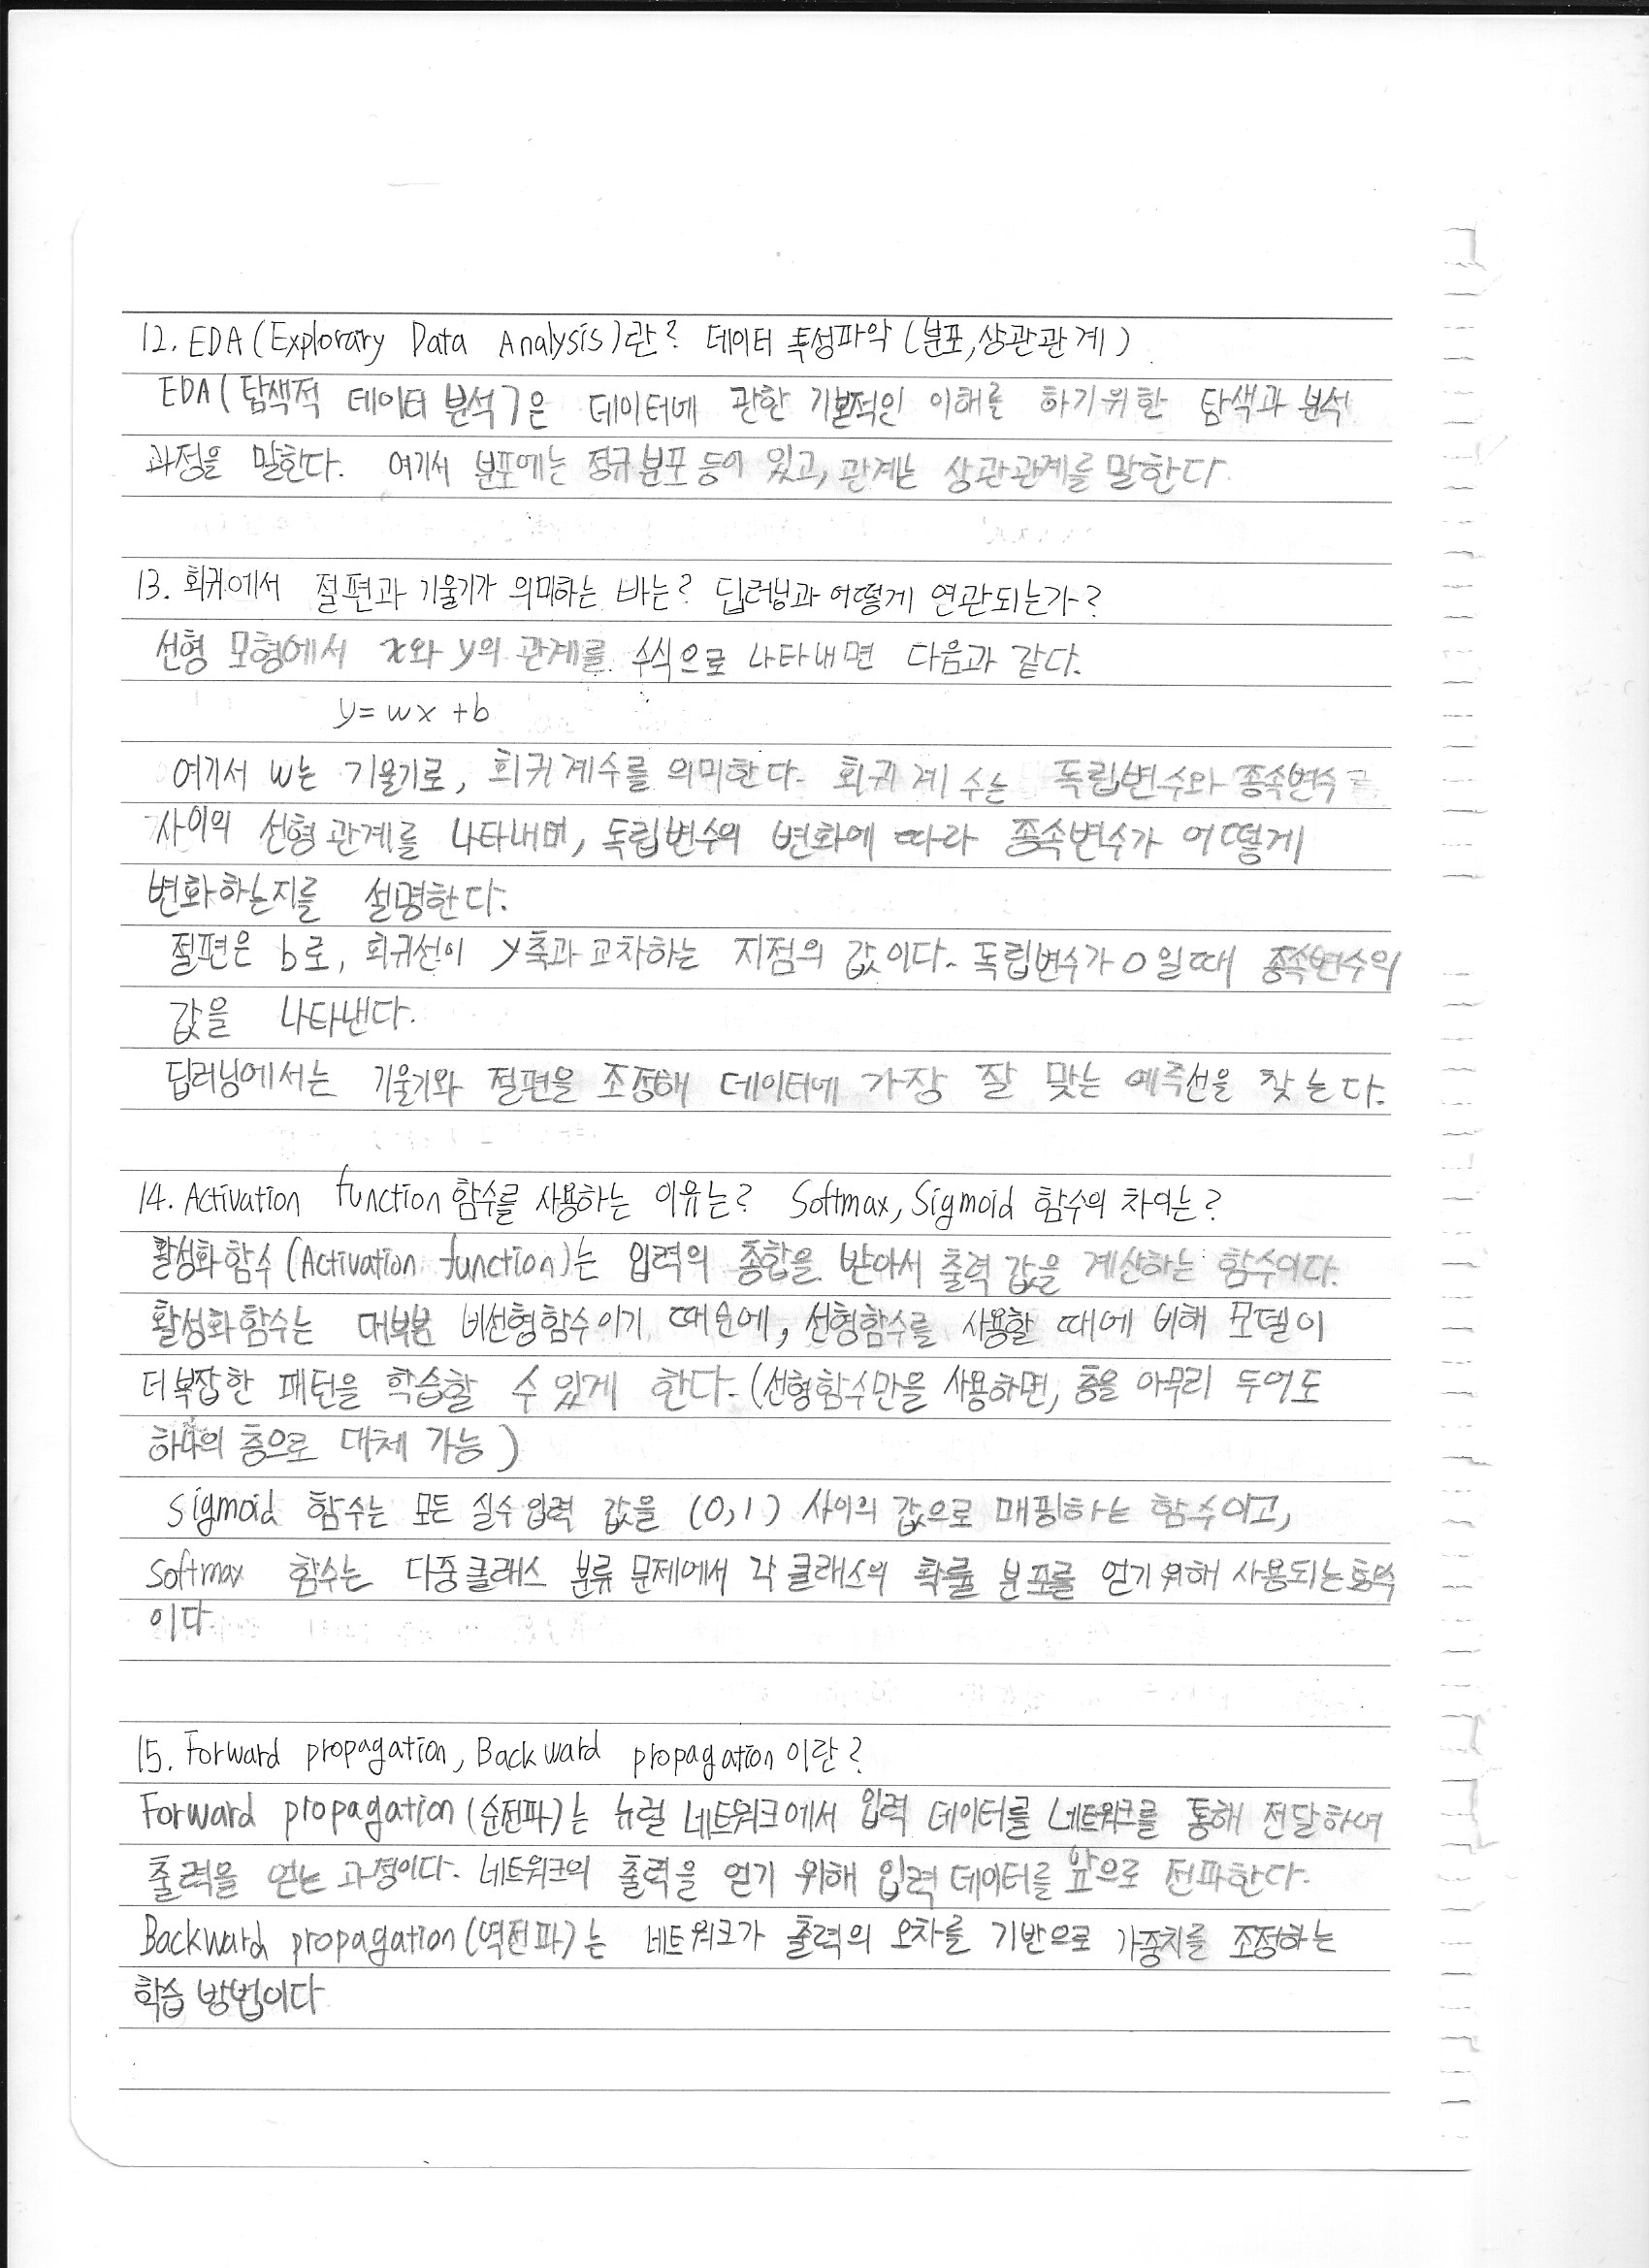 12. EDA (Explorary Data Analysis)란? 데이터 특성파악 (분포, 상관관계)
EDA (탐색적 데이터 분석)은 데이터에 관한 기본적인 이해를 하기위한 탐색과 분석
과정을 말한다. 여기서 분포에는 정규분포 등이 있고, 관계는 상관관계를 말한다.
13. 회귀에서 절편과 기울기가 의미하는 바는? 딥러닝과 어떻게 연관되는가?
선형 모형에서 x와 y의 관계를 수식으로 나타내면 다음과 같다.
y = wx + b
여기서 w는 기울기로, 회귀계수를 의미한다. 회귀 계수는 독립변수와 종속변수
사이의 선형관계를 나타내며, 독립변수의 변화에 따라 종속변수가 어떻게
변화하는지를 설명한다.
절편은 b로, 회귀선이 y축과 교차하는 지점의 값이다. 독립변수가 0일때 종속변수의
값을 나타낸다.
딥러닝에서는 기울기와 절편을 조정해 데이터에 가장 잘 맞는 예측선을 찾는다.
14. Activation function 함수를 사용하는 이유는? Softmax, Sigmoid 함수의 차이는?
활성화함수 (Activation function)는 입력의 총합을 받아서 출력 값을 계산하는 함수이다.
활성화함수는 대부분 비선형함수이기 때문에, 선형함수를 사용할 때에 비해 모델이
더 복잡한 패턴을 학습할 수 있게 한다. (선형함수만을 사용하면, 층을 아무리 두어도
하나의 층으로 대체 가능)
sigmoid 함수는 모든 실수 입력 값을 (0,1) 사이의 값으로 매핑하는 함수이고,
softmax 함수는 다중클래스 분류 문제에서 각 클래스의 확률 분포를 얻기 위해 사용되는
이다
15. Forward propagation, Backward propagation 이란?
Forward propagation (순전파)는 뉴럴 네트워크에서 입력 데이터를 네트워크를 통해 전달하여
출력을 얻는 과정이다. 네트워크의 출력을 얻기 위해 입력 데이터를 앞으로 전파한다.
Backward propagation (역전파)는 네트워크가 출력의 오차를 기반으로 가중치를 조정하는
학습 방법이다